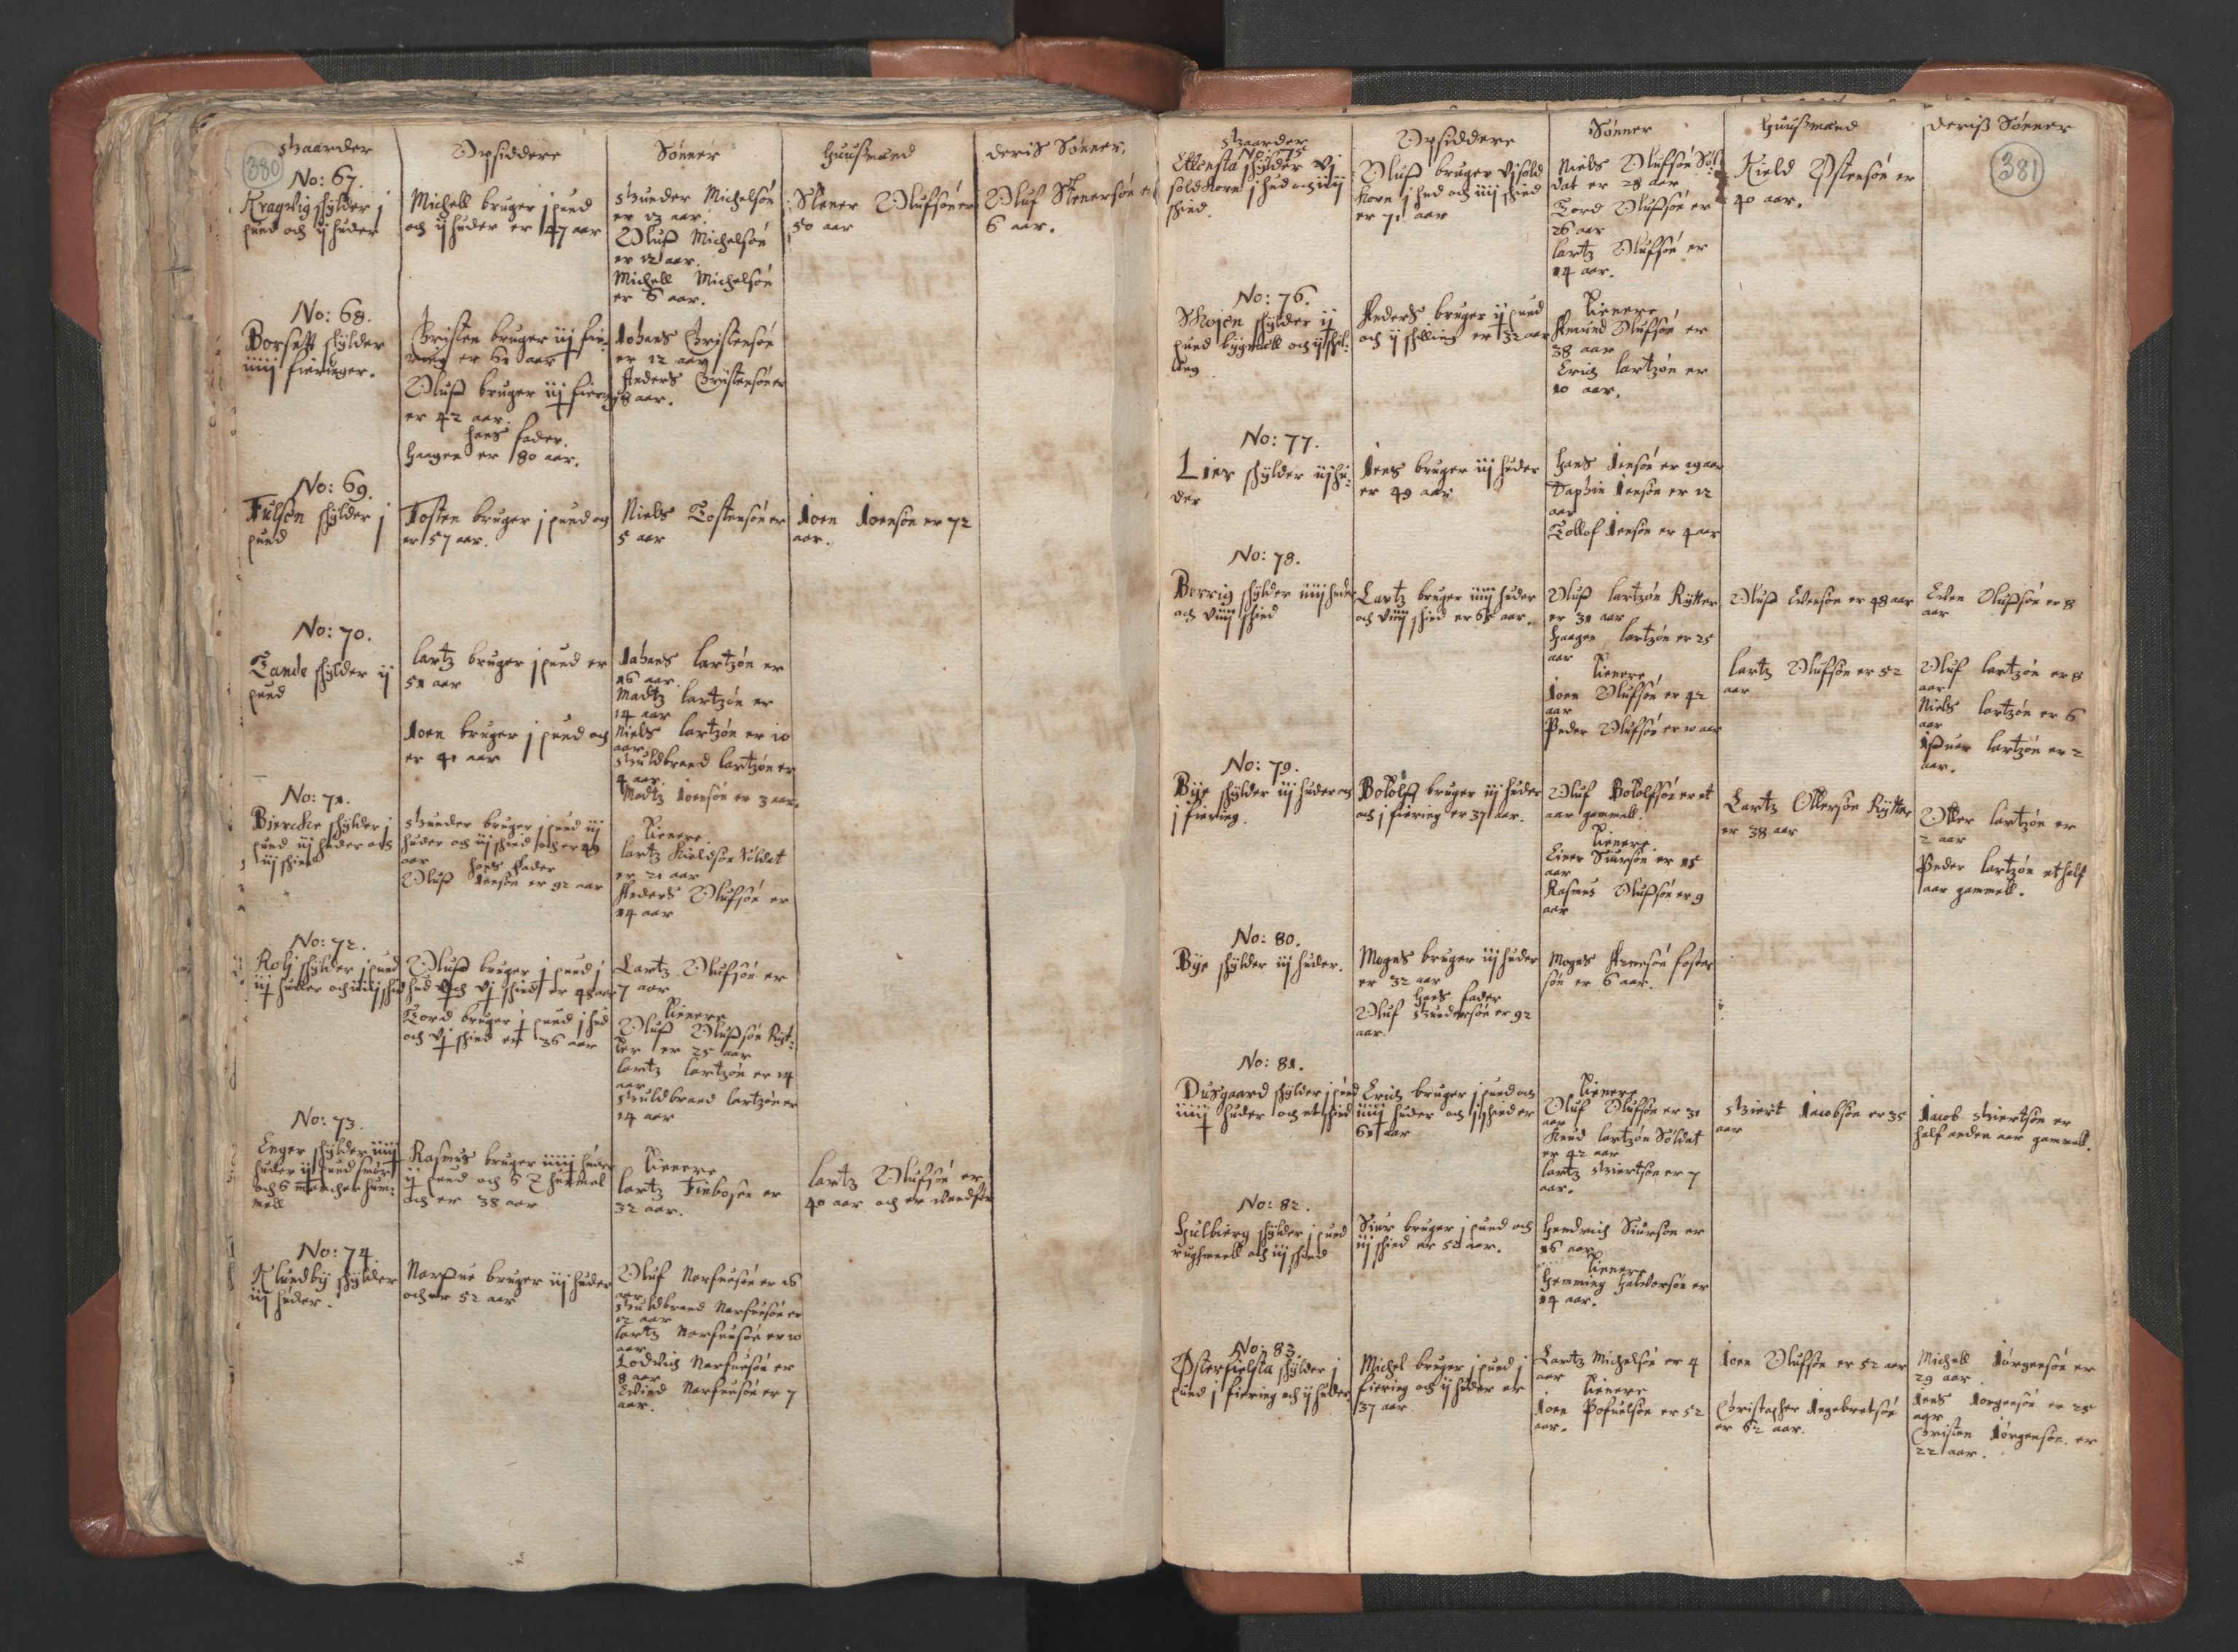 380
Gaarder
Opsiddere
Sønner
Huußmænd
Deris Sønner.
No: 67.
Kragvig schylder j
pund och ij huder
Michell bruger j pund
och ij huder er 47 aar
Gunder Michelsøn
er 13 aar.
Oluff Michelsøn
er 12 aar.
Michell Michelsøn
er 6 aar.
Stener Olufsøn er
50 aar
Oluf Stenersøn er
6 aar.
No: 68.
Borsett schylder
iiij fieringer.
Christen bruger iij fie-
ring er 61 aar
Oluff bruger iij fiering
er 42 aar.
Hans fader.
Haagen er 80 aar.
Johans Christensøn
er 12 aar
Anders Christensøn er
8 aar.
No: 69.
Fulsen schylder j
pund
Tosten bruger j pund og
er 57 aar.
Niels Tostensøn er
5 aar
Joen Joensøn er 72
aar.
No: 70.
Tande schylder ij
pund
Lartz bruger j pund er
51 aar
Joen bruger j pund och
er 41 aar
Johans Lartzøn er
16 aar.
Madtz Lartzøn er
14 aar
Niels Lartzøn er 10
aar
Guldbrand Lartzøn er
4 aar.
Madtz Joensøn er 3 aar.
No: 71.
Biercke schylder j
pund iij huder och
iij schind
Gunder bruger j pund iij
huder och iij schind och er 49
aar
Hans Fader
Oluff Jensøn er 92 aar
Tienere.
Lartz Kieldsøn Soldat
er 21 aar
Anders Olufsøn er
14 aar
No: 72.
Rolj schylder j pund
iij huder och iiij schind
Oluff bruger j pund j
hud och vj schind er 48 aar
Tord bruger j pund j hud
och vj schind er 36 aar
Lartz Olufsøn er
7 aar
Tienere
Oluff Oluffsøn Ryt-
ter er 25 aar
Lartz Lartzøn er 14
aar
Guldbrand Lartzøn er
14 aar
No: 73.
Enger schylder iiij
huder ij pund smør
och 6 marcher hum-
mell
Rasmus bruger iiij huder
ij pund och 6 hummel
och er 38 aar
Tienere
Lartz Finbosøn er
32 aar.
Lartz Olufsøn er
40 aar och er vandfør
No: 74.
Klundby schylder
iij huder.
Narfue bruger iij huder
och er 52 aar
Oluf Narfuesøn er 16
aar
Guldbrand Narfuesøn er
12 aar
Lartz Narfuesøn er 10
aar
Lodvich Narfuesøn er
8 aar
Evind Narfuesøn er 7
aar.
381
Gaarder
Opsiddere
Sønner
Huußmænd
Deriß Sønner
No: 75.
Ellensta schylder vj
sold korn j hud och iiij
schind.
Oluff bruger vj sold
korn j hud och iiij schind
er 71 aar
Niels Olufsøn Sol-
dat er 28 aar
Tord Oluffsøn er
26 aar
Lartz Olufsøn er
14 aar.
Kield Østensøn er
40 aar.
No: 76.
Skojen schylder ij
pund bygmell och ij schil-
ling
Anders bruger ij pund
och ij schilling er 32 aar
Tienere
Amund Olufsøn er
38 aar
Erich Lartzøn er
10 aar.
No: 77.
Lier schylder iij hu-
der
Jens bruger iij huder
er 49 aar
Hans Jensøn er 19 aar
Daphin Jensøn er 12
aar
Tollof Jensøn er 4 aar
No: 78.
Berrig schylder iiij huder
och viiij schind
Lartz bruger iiij huder
och viiij schind er 65 aar.
Oluff Lartzøn Rytter
er 31 aar
Haagen Lartzøn er 25
aar
Tienere
Joen Olufsøn er 42
aar
Peder Olufsøn er 10 aar
Oluff Evensøn er 48 aar
Lartz Olufsøn er 52
aar
Even Oluffsøn er 8
aar
Oluf Lartzøn er 8
aar
Niels Lartzøn er 6
aar
Ifuer Lartzøn er 2
aar.
No: 79.
Bye schylder iij huder och
j fiering.
Bololff bruger iij huder
och j fiering er 37 aar.
Oluf Bololfsøn er et
aar gammell.
Tienere.
Einer Siursøn er 15
aar
Rasmus Oluffsøn er 9
aar
Lartz Ottersøn Rytter
er 38 aar
Otter Lartzøn er
2 aar
Peder Lartzøn et half
aar gammell.
No: 80.
Bye schylder iij huder.
Mogns bruger iij huder
er 32 aar
Hans fader
Oluf Gundersøn er 92
aar.
Mogns Arnesøn foster
søn er 6 aar.
No: 81.
Dusgaard schylder j pund
iiij huder och et schind
Erich bruger j pund och
iiij huder och j schind er
61 aar
Tienere
Oluf Olufsøn er 31
aar
Knud Lartzøn Soldat
er 42 aar
Lartz Giertsøn er 7
aar.
Giert Jacobsøn er 35
aar
Jacob Giertsøn er
half anden aar gammell.
No: 82.
Hulbierg schylder j pund
rughmeell och iij schind
Siur bruger j pund och
iij schind er 51 aar.
Hendrich Siursøn er
16 aar
Tienere
Hemming Halvorsøn er
14 aar.
No: 83.
Østerfielsta schylder j
pund j fiering och ij huder.
Michel bruger j pund j
fiering och ij huder er
37 aar
Lartz Michelsøn er 4
aar
Tienere
Joen Pofuelsøn er 52
aar.
Joen Olufsøn er 52 aar
Christopher Ingebretsøn
er 62 aar.
Michell Jørgensøn er
29 aar
Jens Jørgensøn er 25
aar
Christen Jørgensøn er
22 aar.